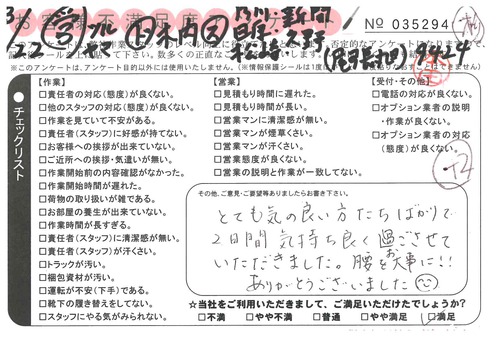 お客様不満足度アンケート
No 035294
3/22
※このアンケートは、アンケート目的以外には使用いたしません。
チェックリスト
【作業】
□責任者の対応(態度)が良くない。
□他のスタッフの対応(態度)が良くない。
□作業を見ていて不安がある。
□責任者(スタッフ)に好感が持てない。
□お客様への挨拶が出来ていない。
□ご近所への挨拶・気遣いが無い。
□作業開始前の内容確認がなかった。
□作業開始時間が遅れた。
□荷物の取り扱いが雑である。
□お部屋の養生が出来ていない。
□作業時間が長すぎる。
□責任者(スタッフ)に清潔感が無い。
□責任者(スタッフ)が汗くさい。
□トラックが汚い。
□梱包資材が汚い。
□運転が不安(下手)である。
□靴下の履き替えをしてない。
□スタッフにやる気がみられない。
【営業】
□見積もり時間に遅れた。
□見積もり時間が長い。
□営業マンに清潔感が無い。
□営業マンが煙草くさい。
□営業マンが汗くさい。
□営業態度が良くない。
□営業の説明と作業が一致してない。
【受付・その他】
□電話の対応が良くない。
□オプション業者の説明
・作業が良くない。
□オプション業者の対応
(態度)が良くない。
その他、ご意見・ご要望等ありましたらお書き下さい。
とても気の良い方たちばかりで
2日間気持ち良く過ごさせて
いただきました。腰をお大事に!!
ありがとうございました
☆当社をご利用いただきまして、ご満足いただけたでしょうか?
□不満 □やや不満 □普通 □やや満足 □満足